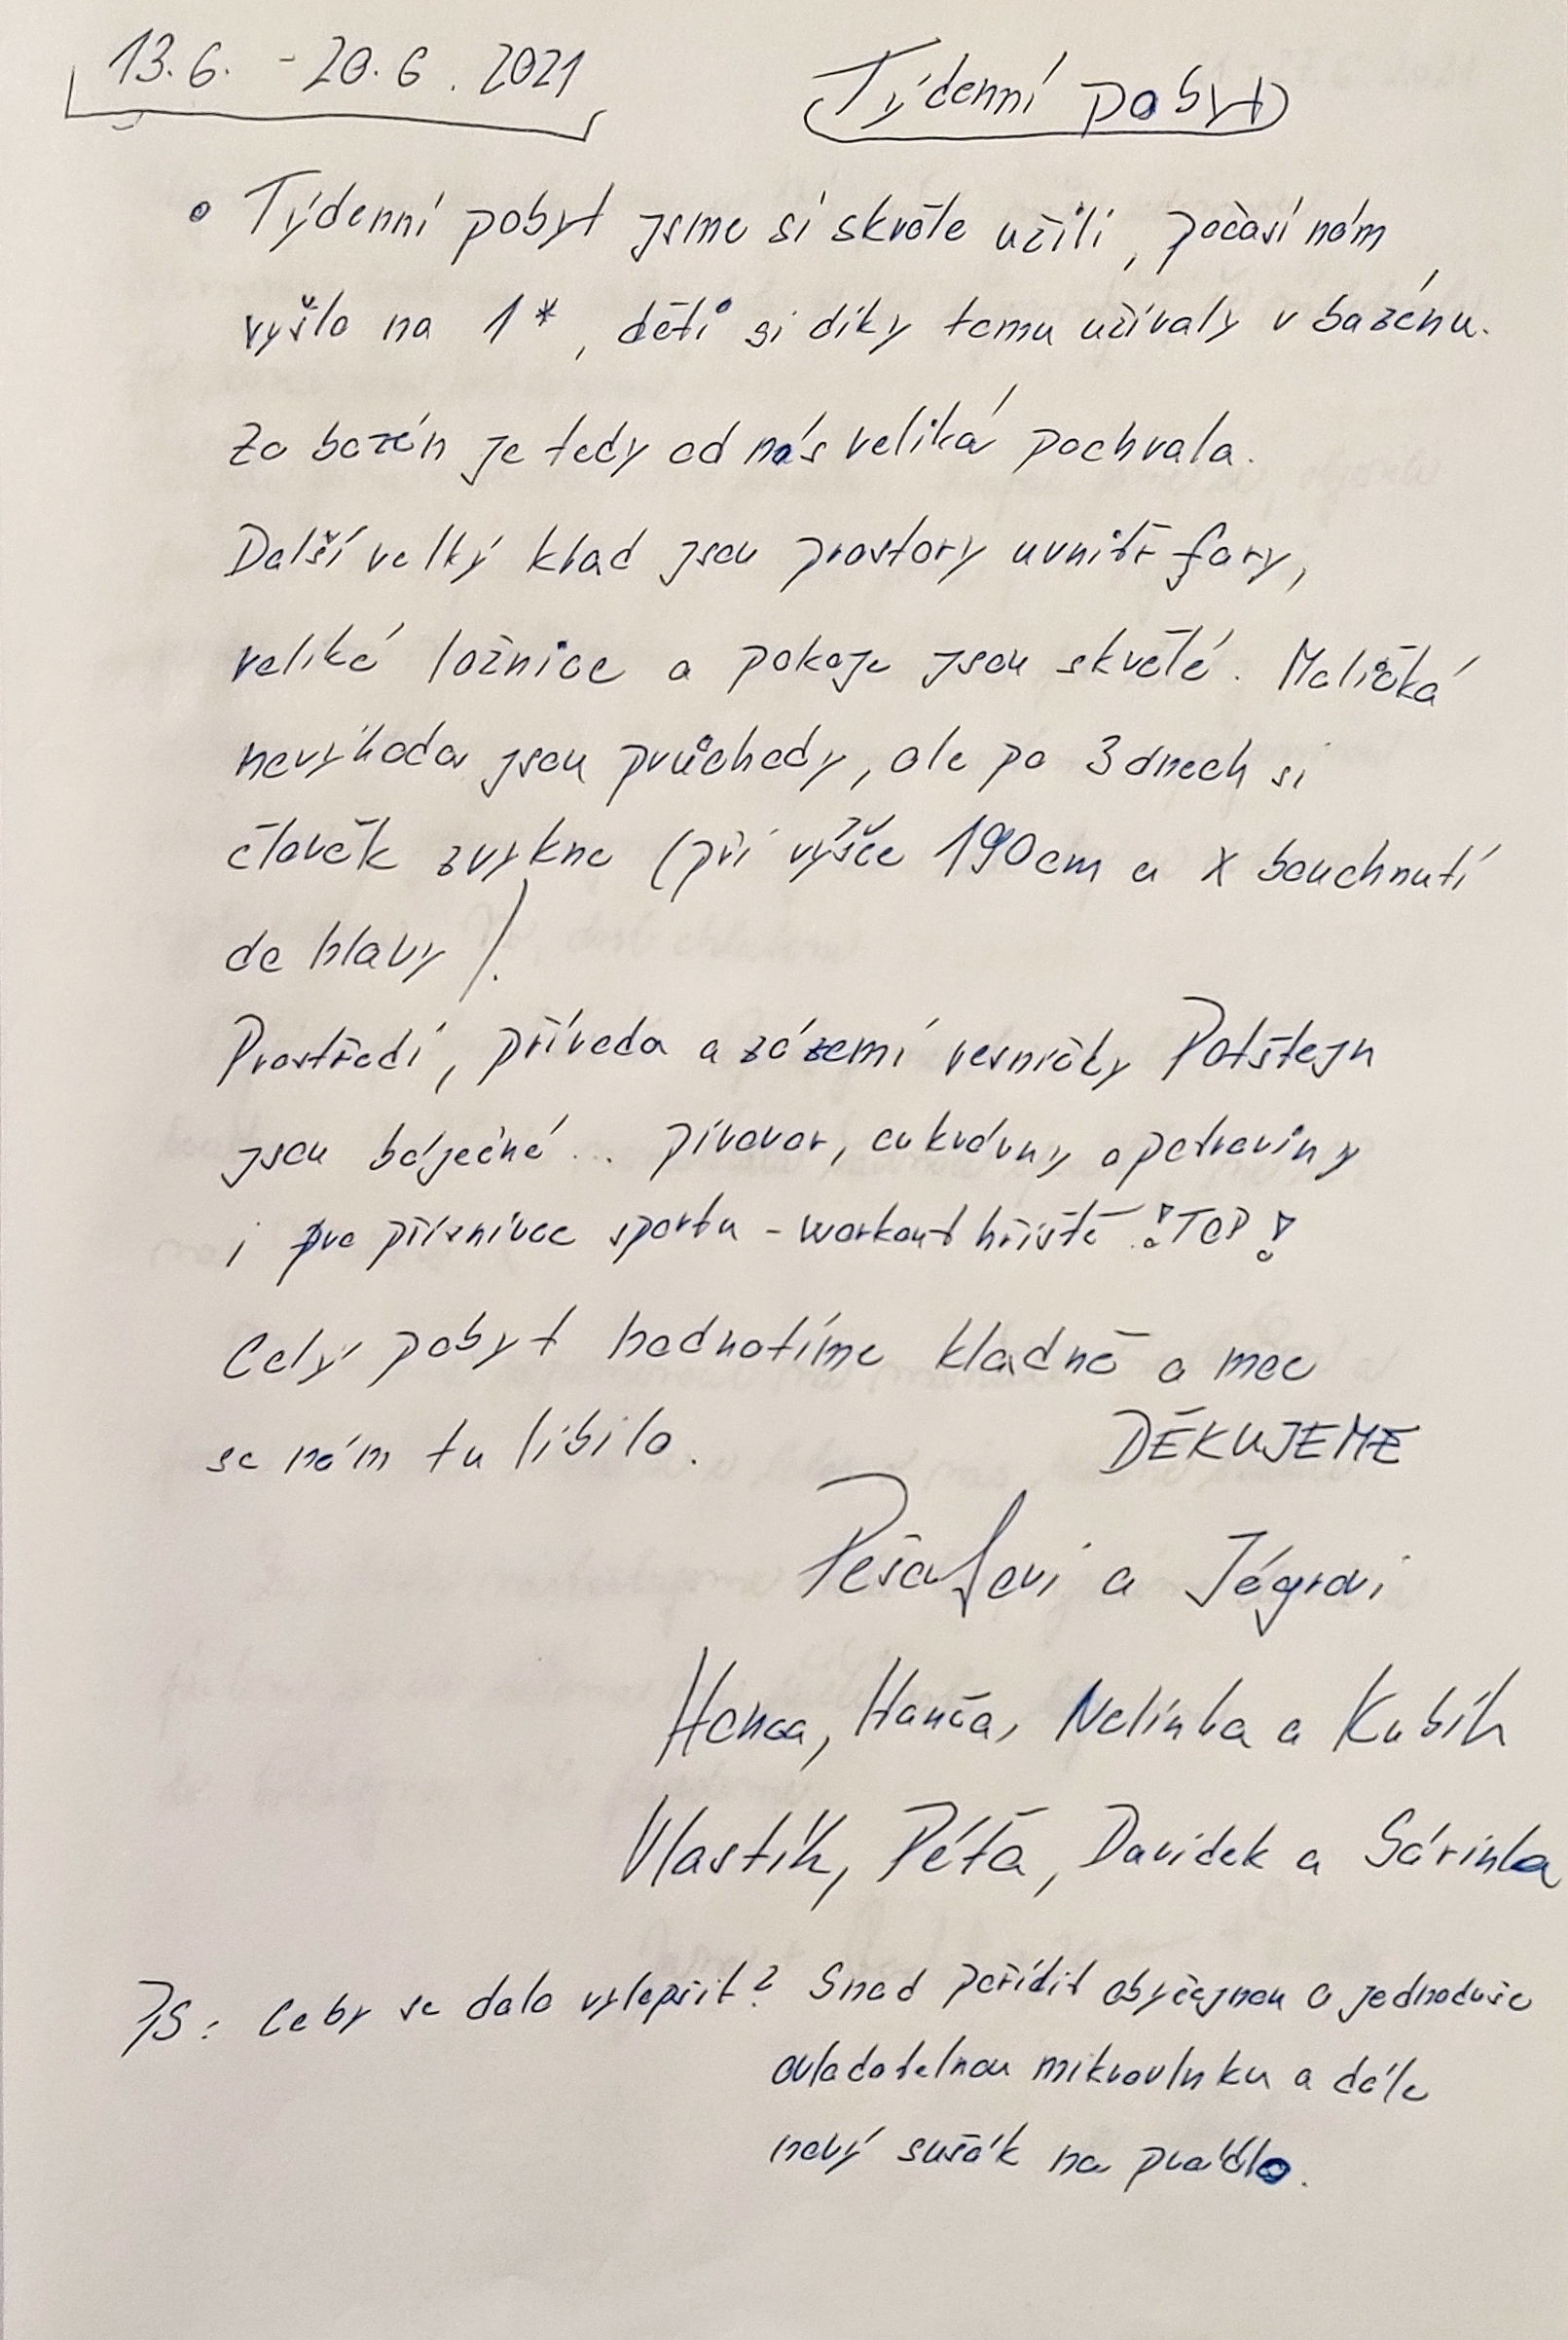 13.6. - 20.6. 2021 Týdenní pobyt
Týdenní pobyt jsme si skvěle užili, počasí nám
vyšlo na 1*, děti si díky tomu užívaly v bazénu.
Za bazén je tedy od nás veliká pochvala.
Další velký klad jsou prostory uvnitř fary,
veliké ložnice a pokoje jsou skvělé. Maličká
nevýhoda jsou průchody, ale po 3 dnech si
člověk zvykne (při výšce 190cm a x bouchnutí
do hlavy).
Prostředí, příroda a zázemí vesničky Potštejn
jsou báječné... pivovar, cukrárny a potraviny
i pro příznivce sportu - workout hřiště !TOP!
Celý pobyt hodnotíme kladně a moc
se nám tu líbilo. DĚKUJEME
a Jégrovi
Hanča, Nelinka a Kubík
Vlastík, Péťa, Davídek a Sárinka
PS: Co by se dalo vylepšit? Snad pořídit obyčejnou a jednoduše
ovladatelnou mikrovlnku a dále
nový sušák na prádlo.